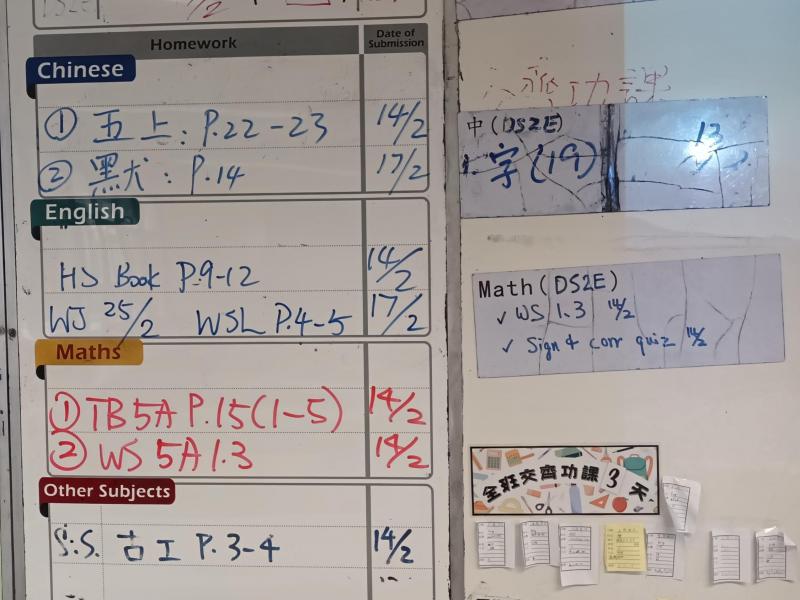 Homework
Date of Submission
Chinese
① 五上: P.22-23 14/2
② 黑犬: P.14 17/2
English
HS Book P.9-12 14/2
WJ 25/2 WSL P.4-5 17/2
Maths
① TB 5A P.15(1-5) 14/2
② WS 5A 1.3 14/2
Other Subjects
S.S. 古工 P.3-4 14/2
功課
中(DS2E)
1. 字(19) 13
Math(DS2E)
✓ WS 1.3 14/2
✓ Sign & corr quiz 14/2
全班交齊功課3天